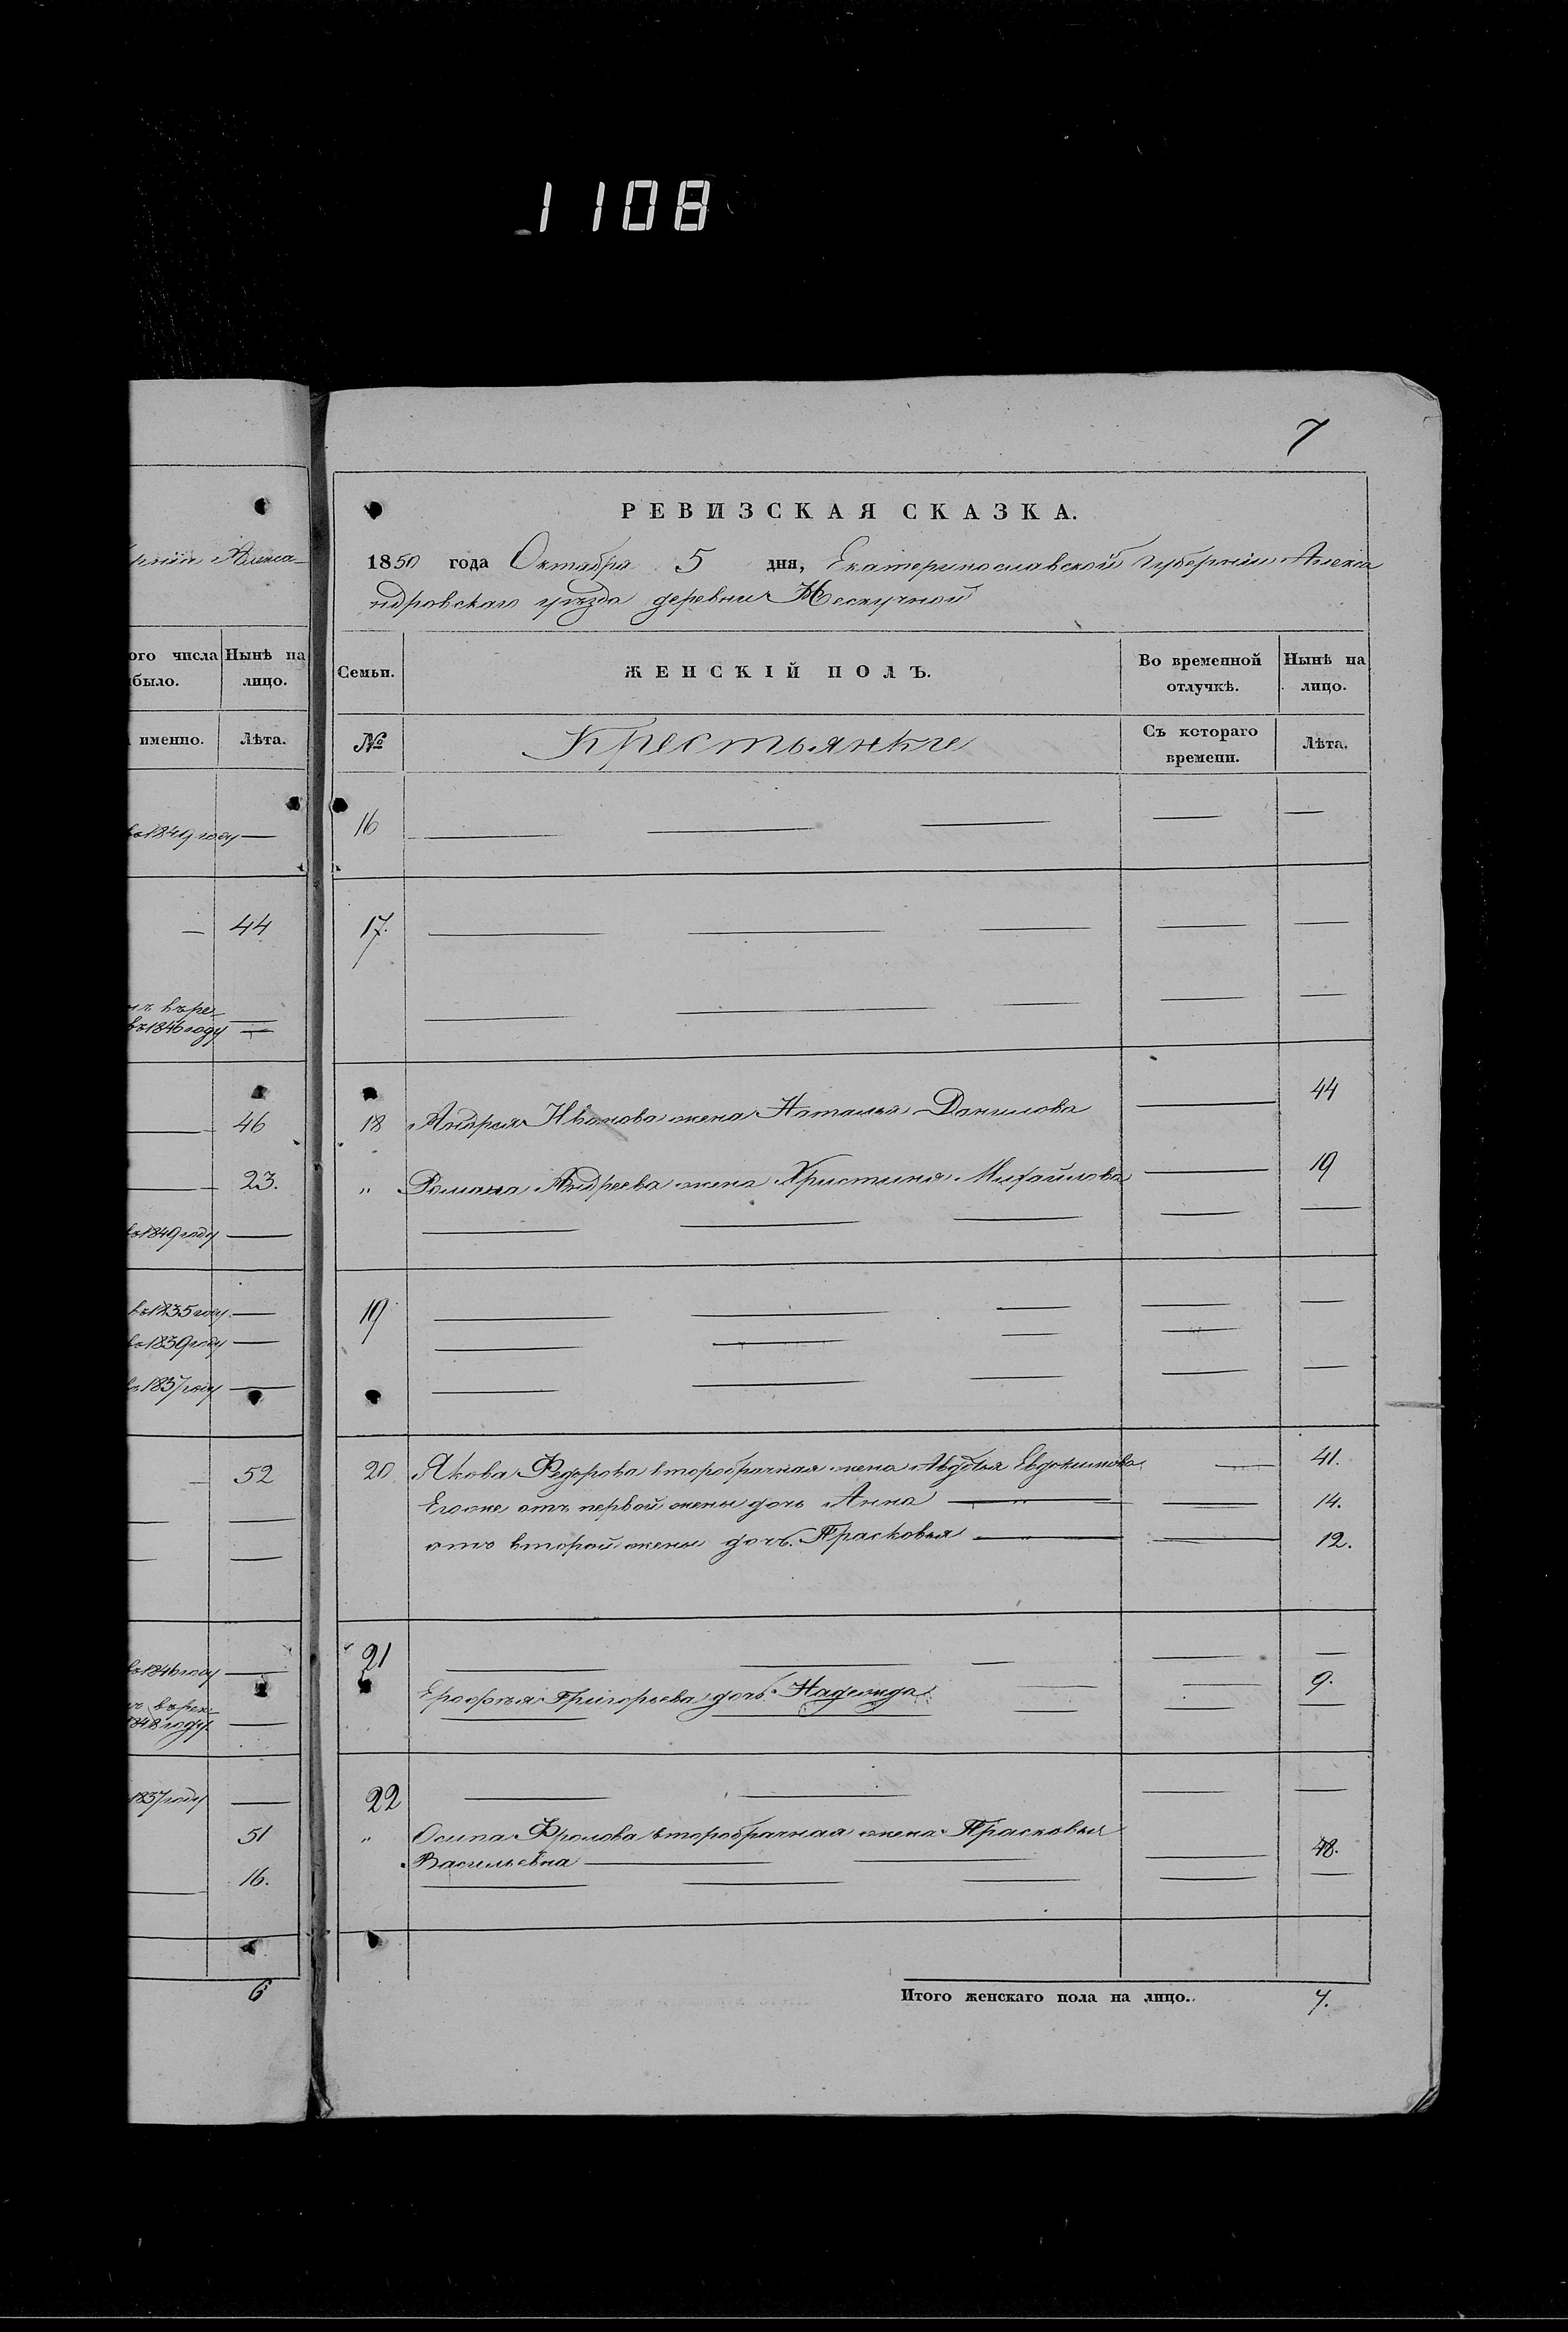 1108
7
РЕВИЗСКАЯ СКАЗКА.
1850 года Октября 5 дня, Екатеринославской Губернiи Алекса
ндровскаго уѣзда деревни Нескучной
Семьи. ЖЕНСКIЙ ПОЛЪ. Во временной отлучкѣ. Нынѣ на лицо.
№ Крестьянки Съ котораго времени. Лѣта.
16
17.
18 Андрея Иванова жена Наталья Данилова 44
" Романа Андреева жена Христинья Михайлова 19
19
20 Якова Федорова второбрачная жена Авдотья Евдокимова 41.
Егоже отъ первой жены дочь Анна 14.
отъ второй жены дочь Прасковья 12.
21
Ерофѣя Григорьева дочь Надежда 9.
22
" Осипа Фролова второбрачная жена Прасковья
Васильевна 48.
Итого женскаго пола на лицо. 7.
рнiи Алекса-
ого числа Нынѣ на
было. лицо.
именно. Лѣта.
въ 1849 году
44
въ 1846 году
46
23.
въ 1849 году
въ 1835 году
въ 1839 году
въ 1837 году
52
въ 1846 году
1848 году.
1837 году
51
16.
6